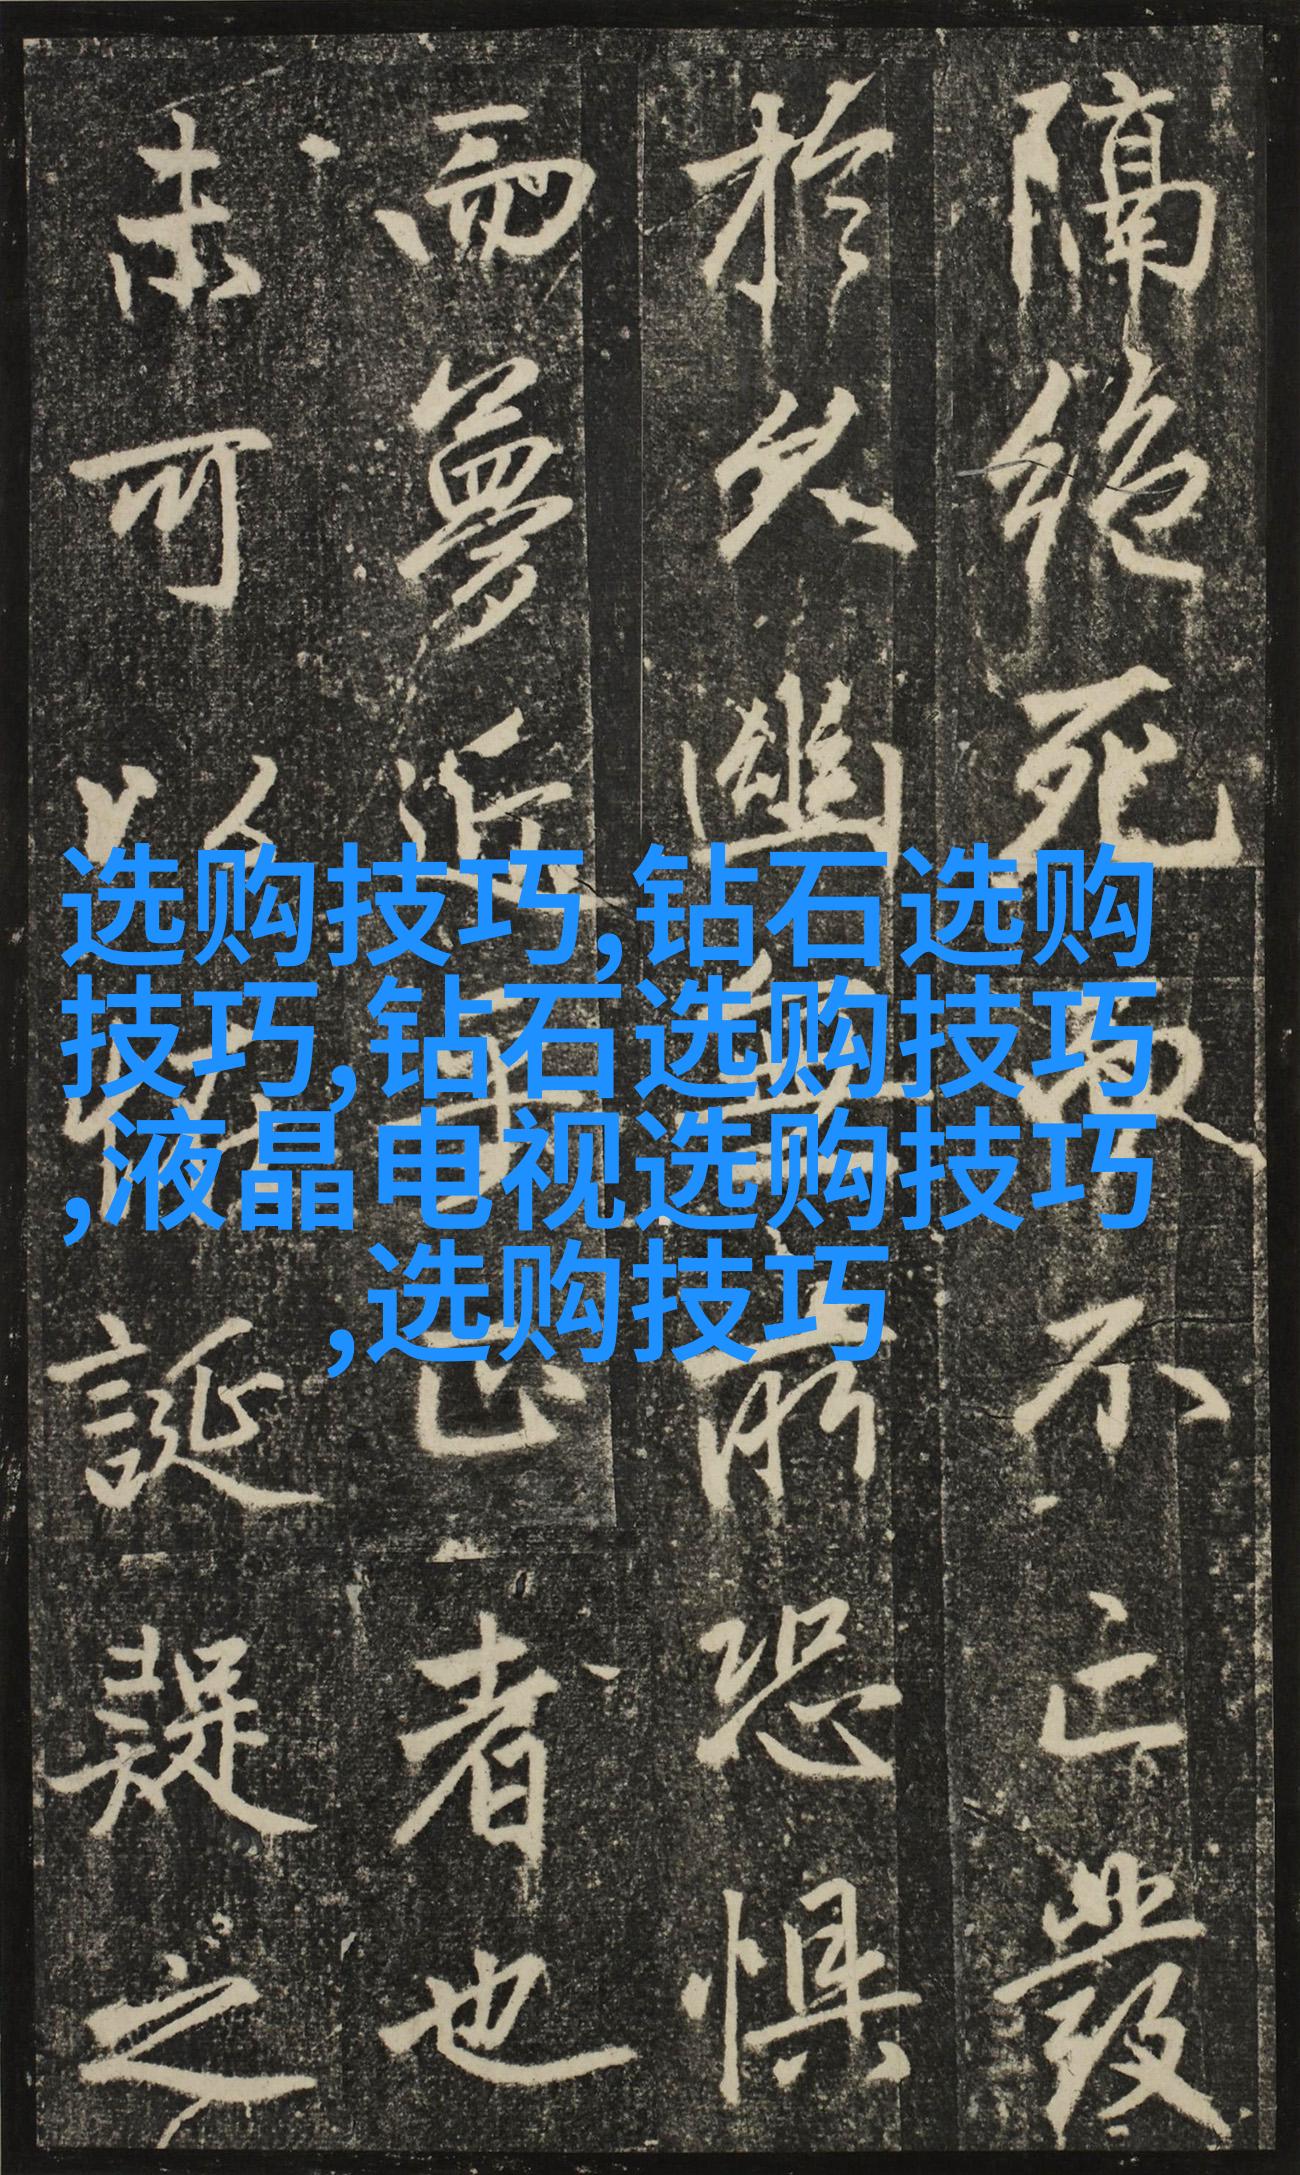 隔絶死不亡發
於久幽無所恐懼
而夢近乎正者也
未可以怪誕疑之
选购技巧,钻石选购
技巧,钻石选购技巧
,液晶电视选购技巧
,选购技巧